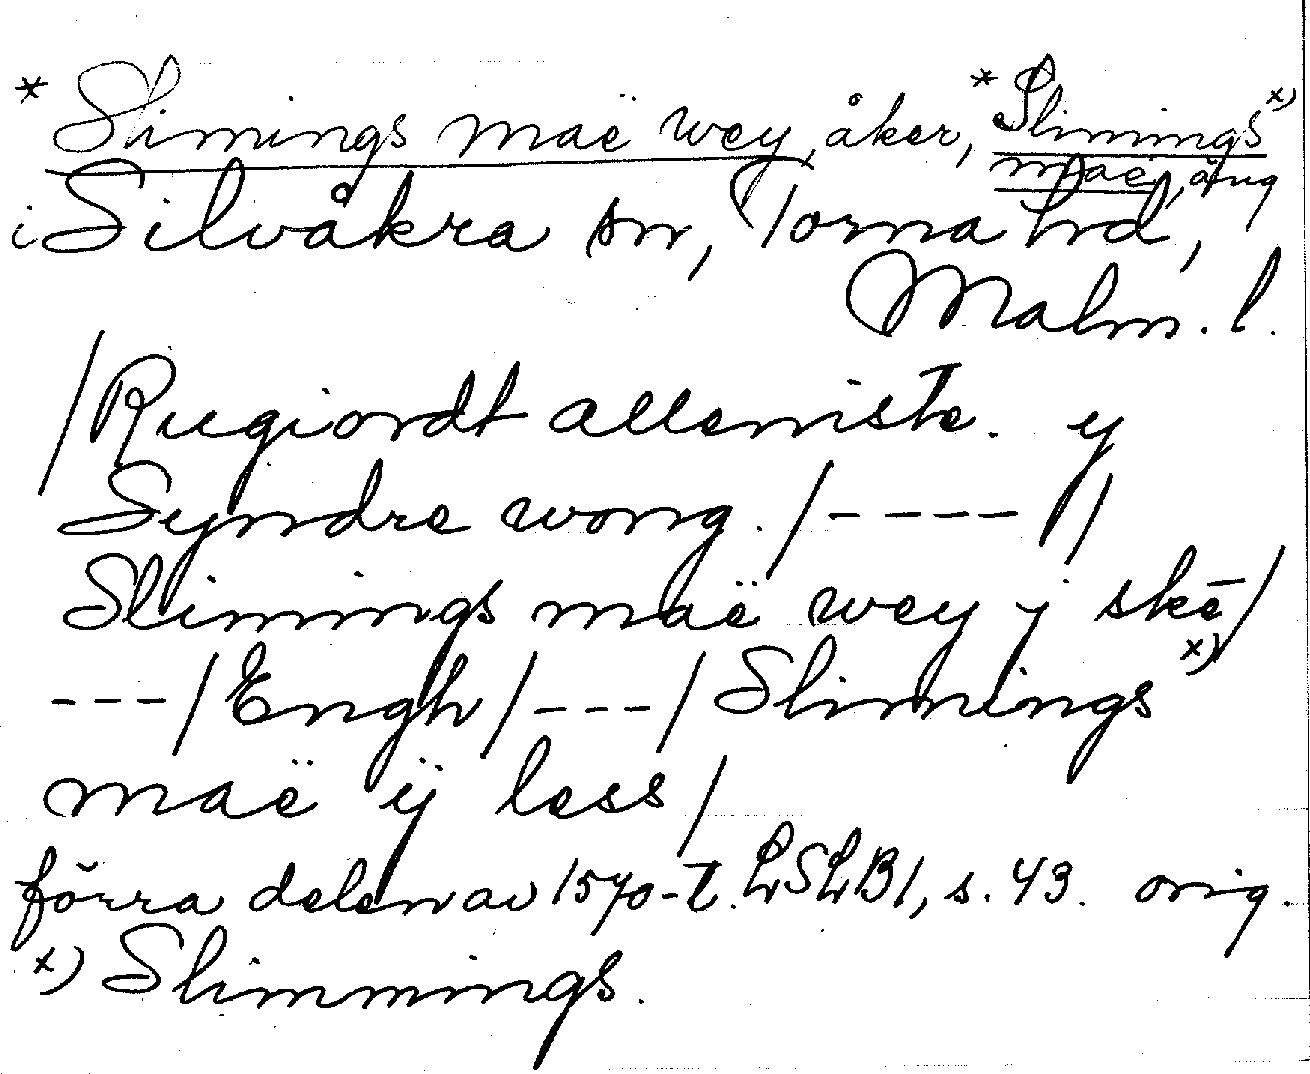 * Slimings maë wey, åker, * Slimings x)
maë, äng
i Silvåkra sn, Torna hd,
Malm. l.
/Rugiordt allemiste. y
Syndre wong. /----//
Slimings maë wey j skē/
---/Engh/---/Slimings x)
maë ÿ less/
förra delen av 1570-t. LSLB1, s. 43. orig.
x) Slimmings.